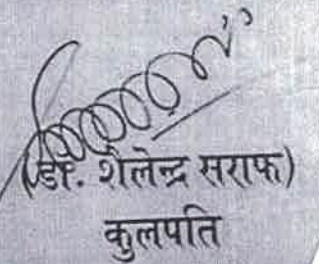 (डॉ. शैलेन्द्र सराफ)
कुलपति